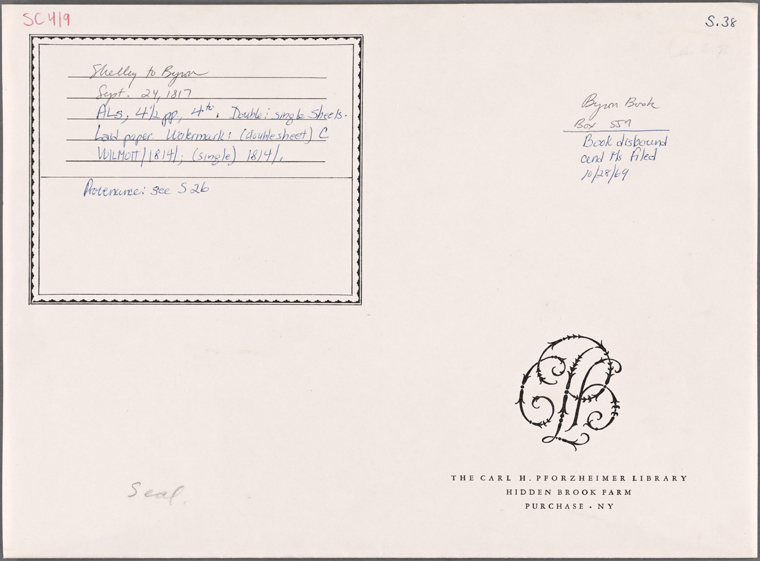 SC419
S.38
Shelley to Byron
Sept. 24, 1817
ALS, 4½ pp., 4to. Double: single sheets.
Laid paper Watermark: (double sheet) C
WILMOTT/1814/; (single) 1814/.
Provenance: see S 26
Byron Book
Box 557
Book disbound
and Ms filed
10/28/69
Seal.
THE CARL H. PFORZHEIMER LIBRARY
HIDDEN BROOK FARM
PURCHASE · NY